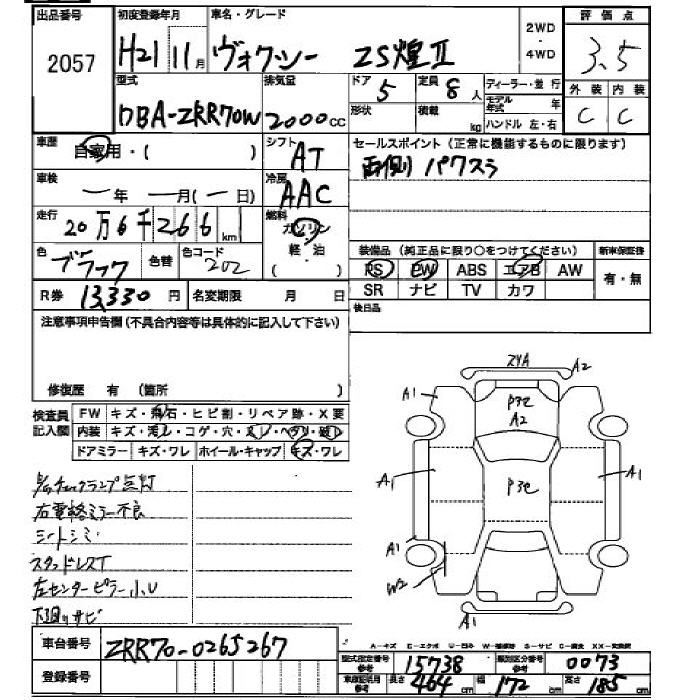 出品番号 初度登録年月 車名・グレード 2WD 評価点
2057 H21 11月 ヴォクシー ZS煌Ⅱ ・4WD 3.5
型式 排気量 ドア 定員 ディーラー・並行 外装 内装
DBA-ZRR70W 2000cc 5 8人 モデル年式 年 C C
形状 積載 kg ハンドル 左・右
車歴 自家用・( ) シフト AT セールスポイント(正常に機能するものに限ります)
車検 ー年 ー月(ー日) 冷房 AAC 両側パワスラ
走行 20万6千266km 燃料 ガソリン
色 ブラック 色替 色コード 202 軽油 ( ) 装備品(純正品に限り○をつけてください) 新車保証書
PS PW ABS エアB AW 有・無
R券 13,330円 名変期限 月 日 SR ナビ TV カワ
注意事項申告欄(不具合内容等は具体的に記入して下さい) 後日品
修復歴 有 (箇所
検査員記入欄 FW キズ・飛石・ヒビ割・リペア跡・X要
内装 キズ・汚レ・コゲ・穴・スレ・ヘタリ・破レ
ドアミラー キズ・ワレ ホイール・キャップ キズ・ワレ
チェックランプ点灯
右電格ミラー不良
シートシミ
スタッドレスT
左センターピラー小U
下回りサビ
A1 A2
P3c
A2
A1 P3c A1
A1
W2
A1
A-キズ E-エクボ U-凹み W-補修跡 S-サビ C-腐食 XX-交換歴
車台番号 ZRR70-0265267
型式指定番号 参考 15738 類別区分番号 参考 0073
登録番号 車庫証明用 参考 長さ 464cm 幅 172cm 高さ 185cm